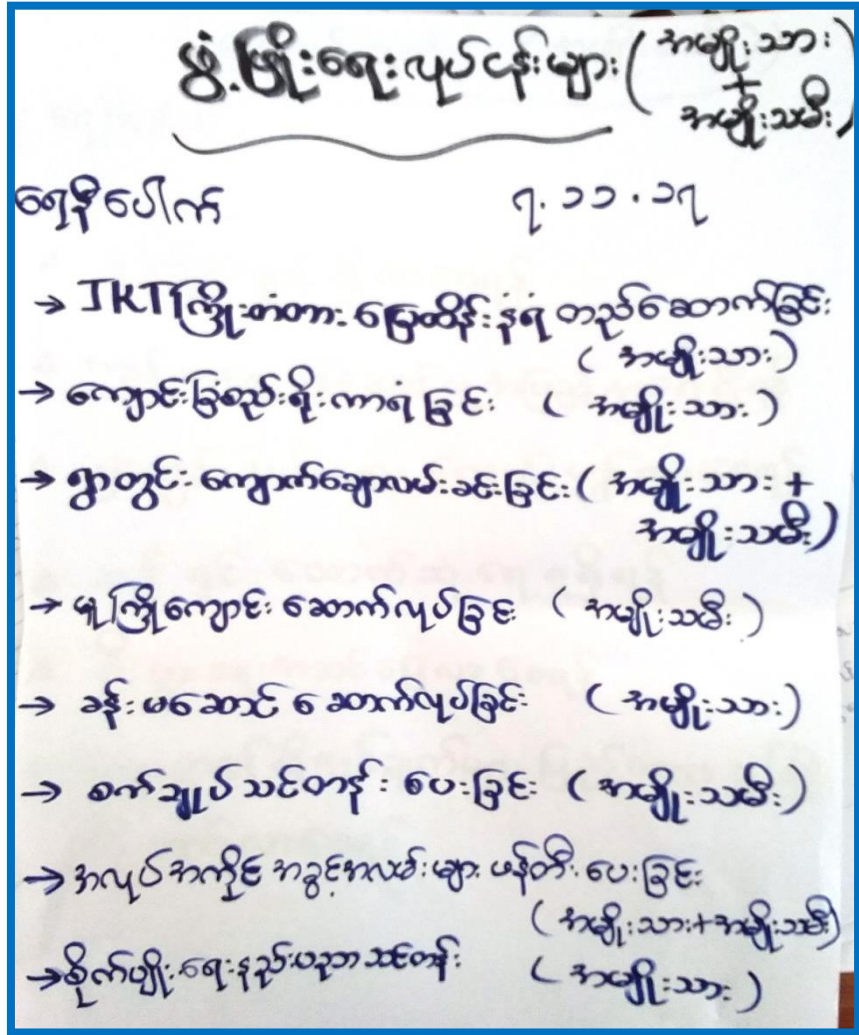 ဖွံ့ဖြိုးရေးလုပ်ငန်းများ (အမျိုးသား
+
အမျိုးသမီး)
ရေနံပေါက် ၇.၁၁.၁၇
→ JKT ကြိုးတံတား မြေထိန်းနံရံ တည်ဆောက်ခြင်း
(အမျိုးသား)
→ ကျောင်းခြံစည်းရိုးကာရံခြင်း (အမျိုးသား)
→ ရွာတွင်း ကျောက်ချောလမ်းခင်းခြင်း (အမျိုးသား +
အမျိုးသမီး)
→ မူကြိုကျောင်း ဆောက်လုပ်ခြင်း (အမျိုးသမီး)
→ ခန်းမဆောင် ဆောက်လုပ်ခြင်း (အမျိုးသား)
→ စက်ချုပ်သင်တန်း ပေးခြင်း (အမျိုးသမီး)
→ အလုပ်အကိုင် အခွင့်အလမ်းများ ဖန်တီးပေးခြင်း
(အမျိုးသား+အမျိုးသမီး)
→ စိုက်ပျိုးရေးနည်းပညာသင်တန်း (အမျိုးသား)